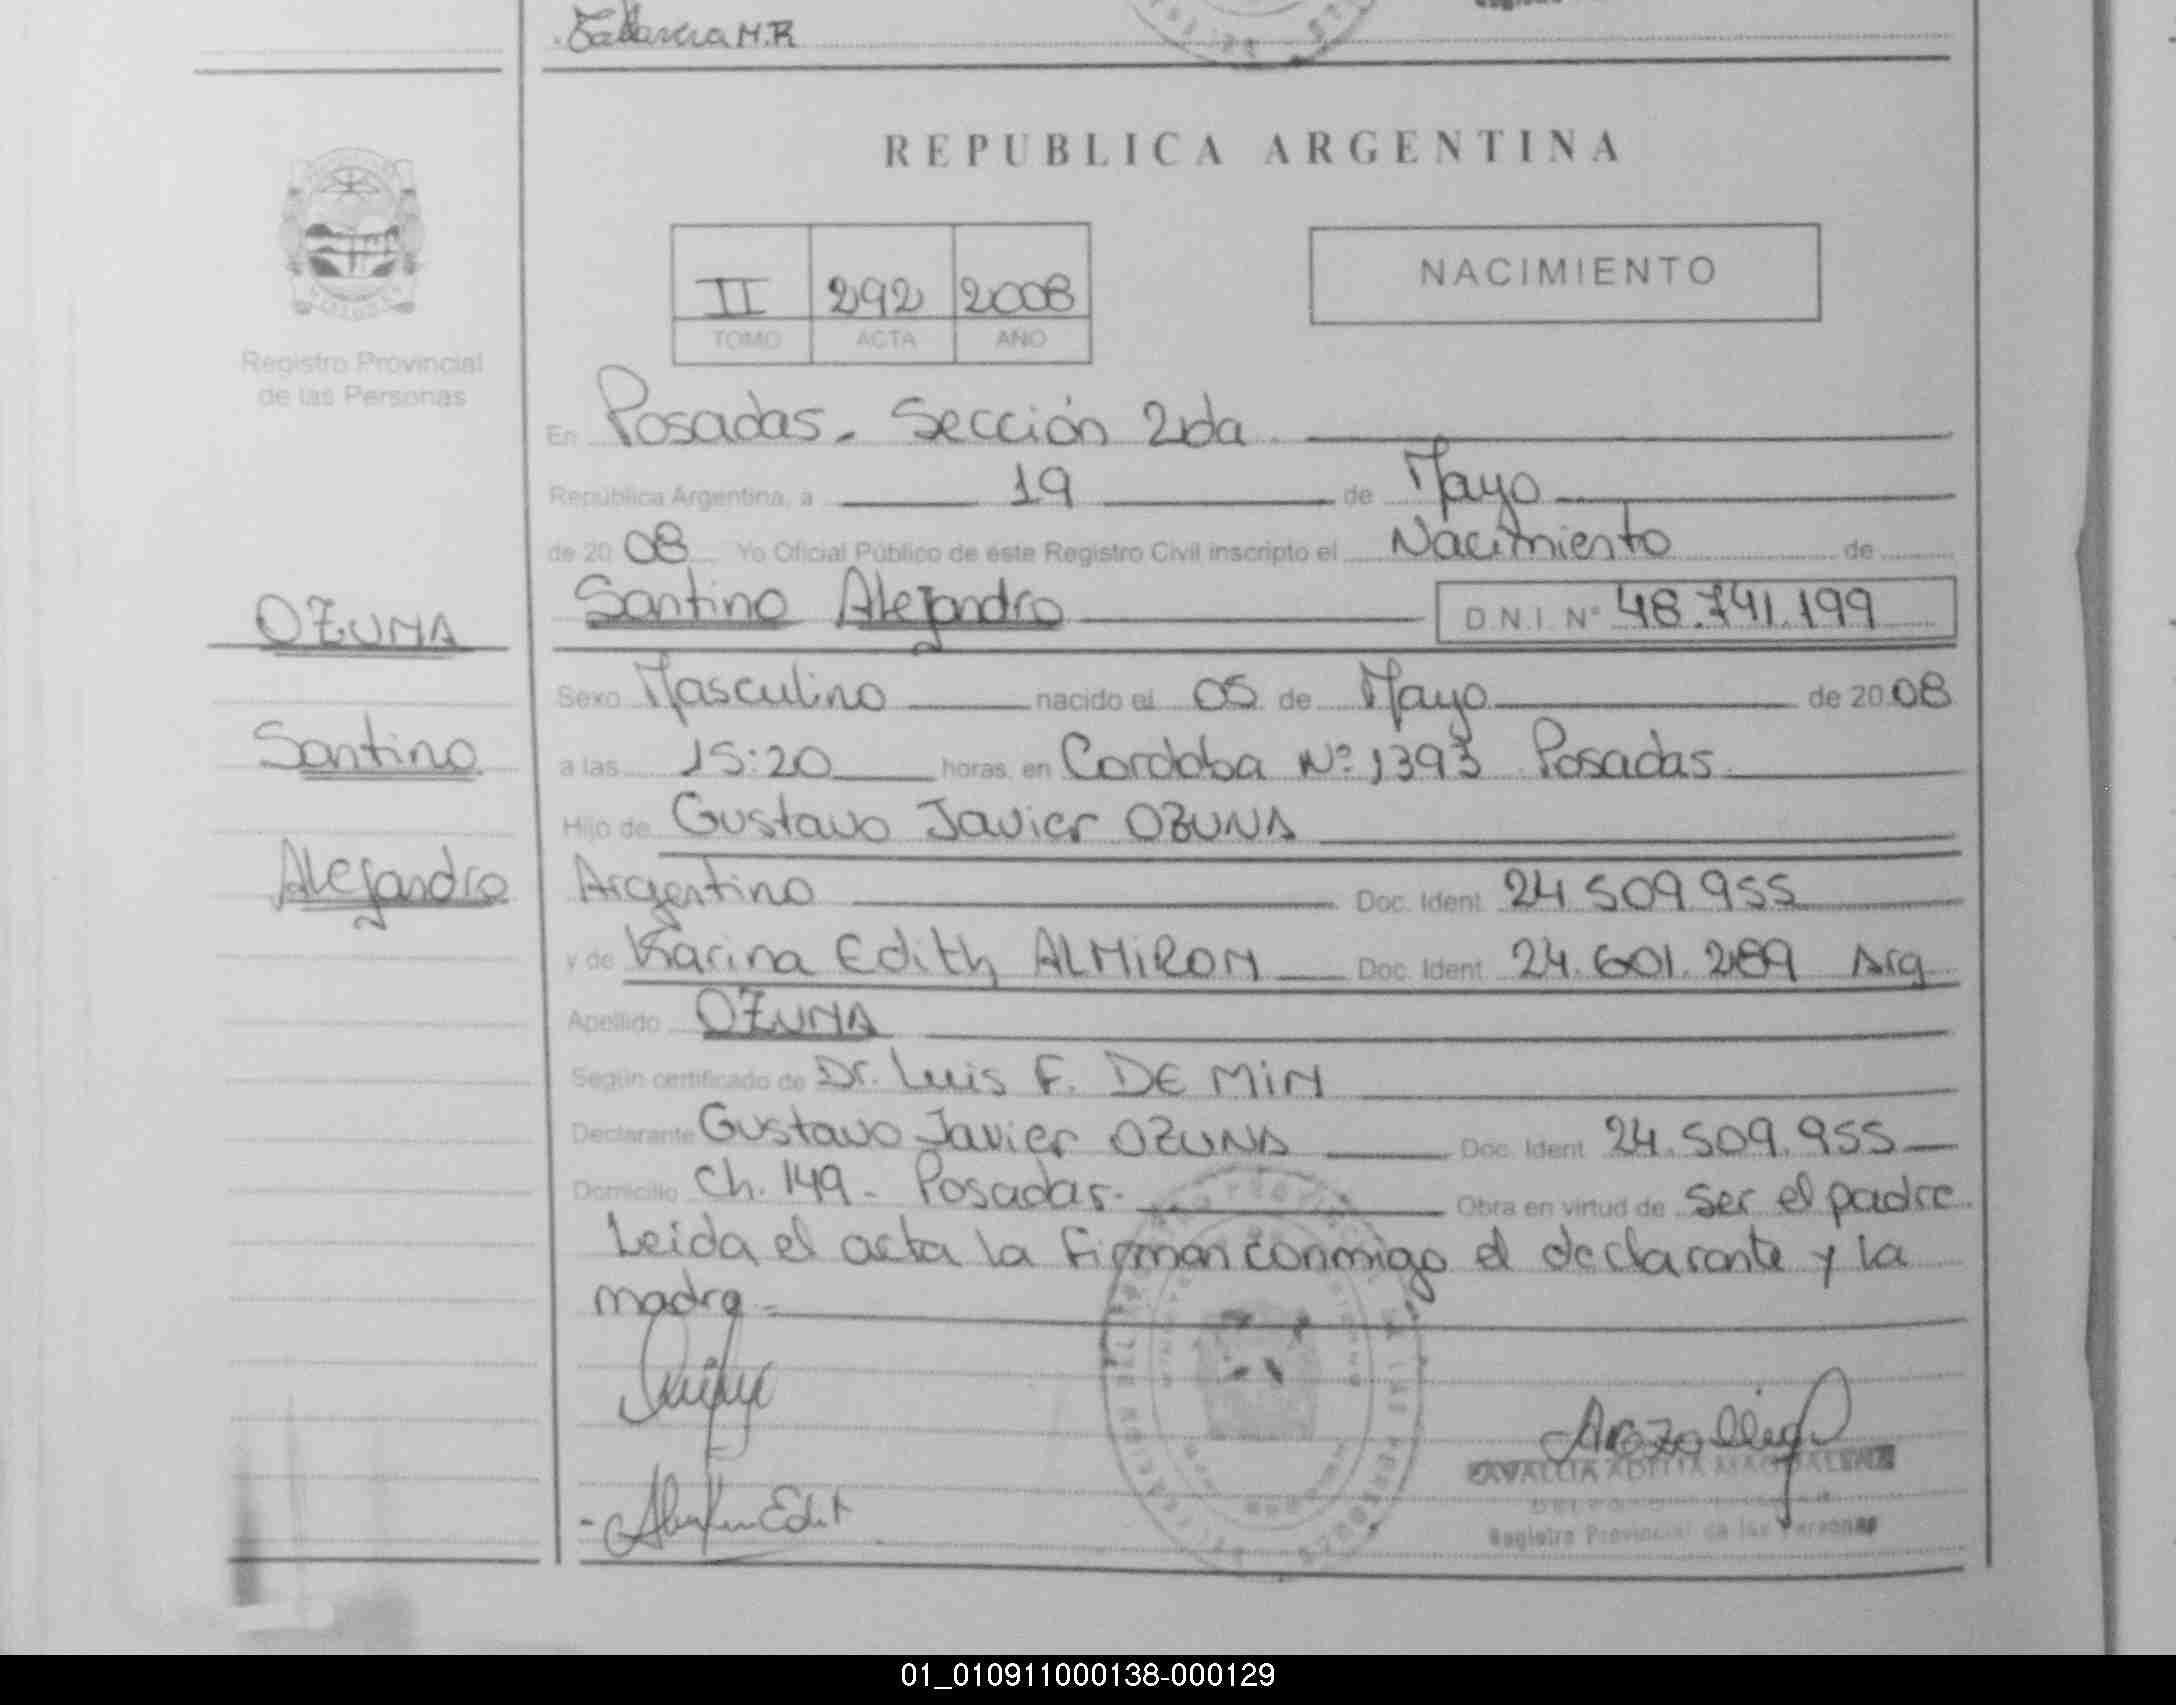 REPUBLICA ARGENTINA
II 292 2008
TOMO ACTA AÑO
NACIMIENTO
Registro Provincial
de las Personas
En Posadas. Sección 2da
República Argentina, a 19 de Mayo
de 20 08 Yo Oficial Público de éste Registro Civil inscripto el Nacimiento de
Santino Alejandro D.N.I. Nº 48.741.199
OZUNA
Sexo Masculino nacido el 05 de Mayo de 20 08
Santino
a las 15:20 horas, en Cordoba Nº 1393 Posadas
Hijo de Gustavo Javier OZUNA
Alejandro
Argentino Doc. Ident. 24.509.955
y de Karina Edith ALMIRON Doc. Ident. 24.601.289 Arg
Apellido OZUNA
Según certificado de Dr. Luis F. DE MIN
Declarante Gustavo Javier OZUNA Doc. Ident. 24.509.955
Domicilio Ch. 149 - Posadas. Obra en virtud de Ser el padre
Leida el acta la firman conmigo el declarante y la
madre
Edit
Registro Provincial de las Personas
01_010911000138-000129